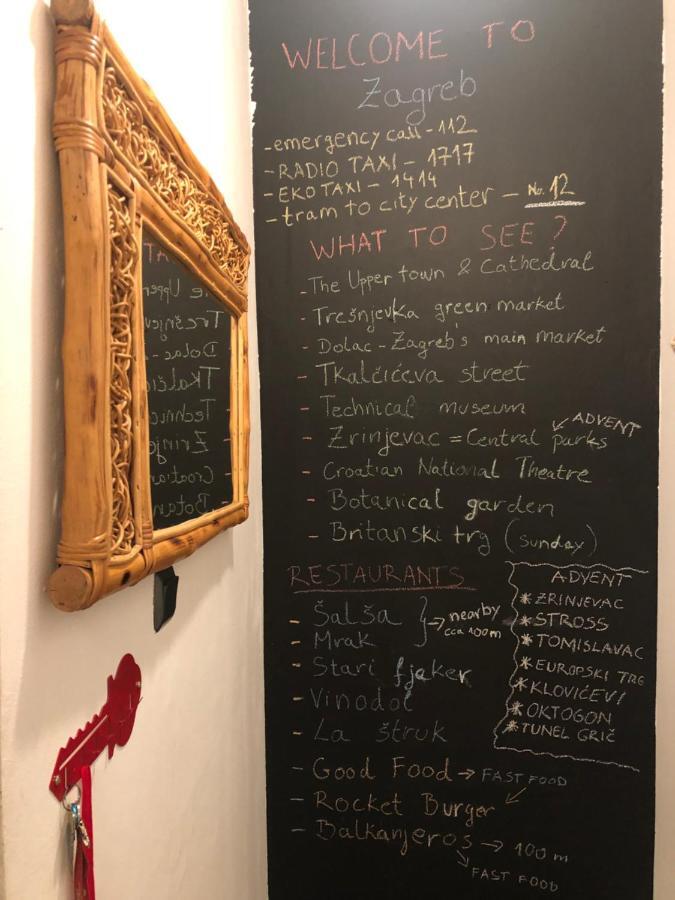 WELCOME TO
Zagreb
-emergency call - 112
-RADIO TAXI - 1717
-EKO TAXI - 1414
-tram to city center - No. 12
WHAT TO SEE?
-The Upper town & Cathedral
-Trešnjevka green market
-Dolac - Zagreb's main market
-Tkalčićeva street
-Technical museum
-Zrinjevac = Central parks
↙ ADVENT
-Croatian National Theatre
-Botanical garden
-Britanski trg (sunday)
RESTAURANTS
-Šalša
-Mrak
} → nearby
cca 100m
-Stari fjaker
-Vinodol
-La štruk
-Good Food → FAST FOOD
-Rocket Burger ↙
-Balkanjeros → 100 m
↘ FAST FOOD
ADVENT
*ZRINJEVAC
*STROSS
*TOMISLAVAC
*EUROPSKI TRG
*KLOVIĆEVI
*OKTOGON
*TUNEL GRIČ